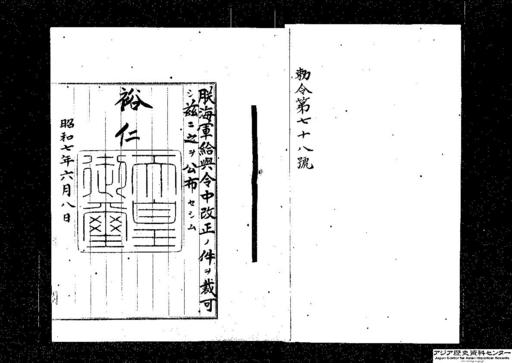 勅令第七十八號
朕海軍給與令中改正ノ件ヲ裁可
シ茲ニ之ヲ公布セシム
裕仁
天皇御璽
昭和七年六月八日
アジア歴史資料センター
Japan Center for Asian Historical Records